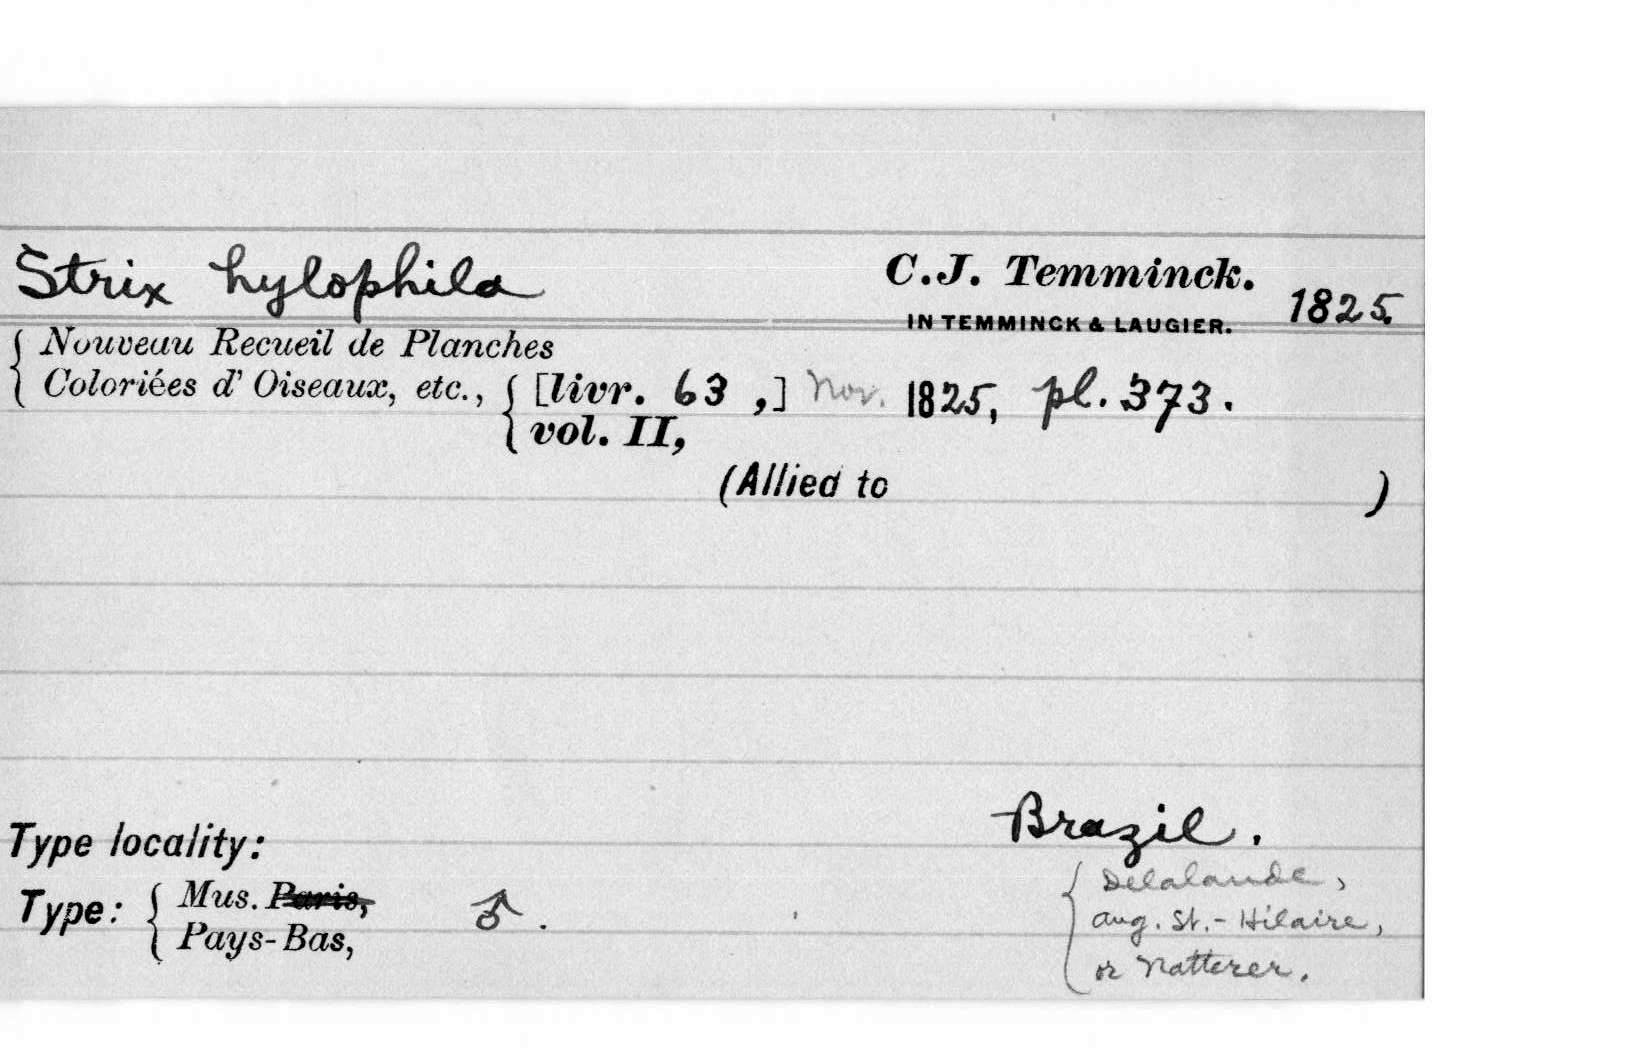 Strix hylophila C.J. Temminck.
IN TEMMINCK & LAUGIER. 1825.
Nouveau Recueil de Planches
Coloriées d' Oiseaux, etc., [livr. 63 ,] Nov. 1825, pl. 373.
vol. II,
(Allied to )
Type locality: Brazil.
Delalande,
Type: Mus. Paris, ♂.
aug. St.-Hilaire,
Pays-Bas,
or Natterer.